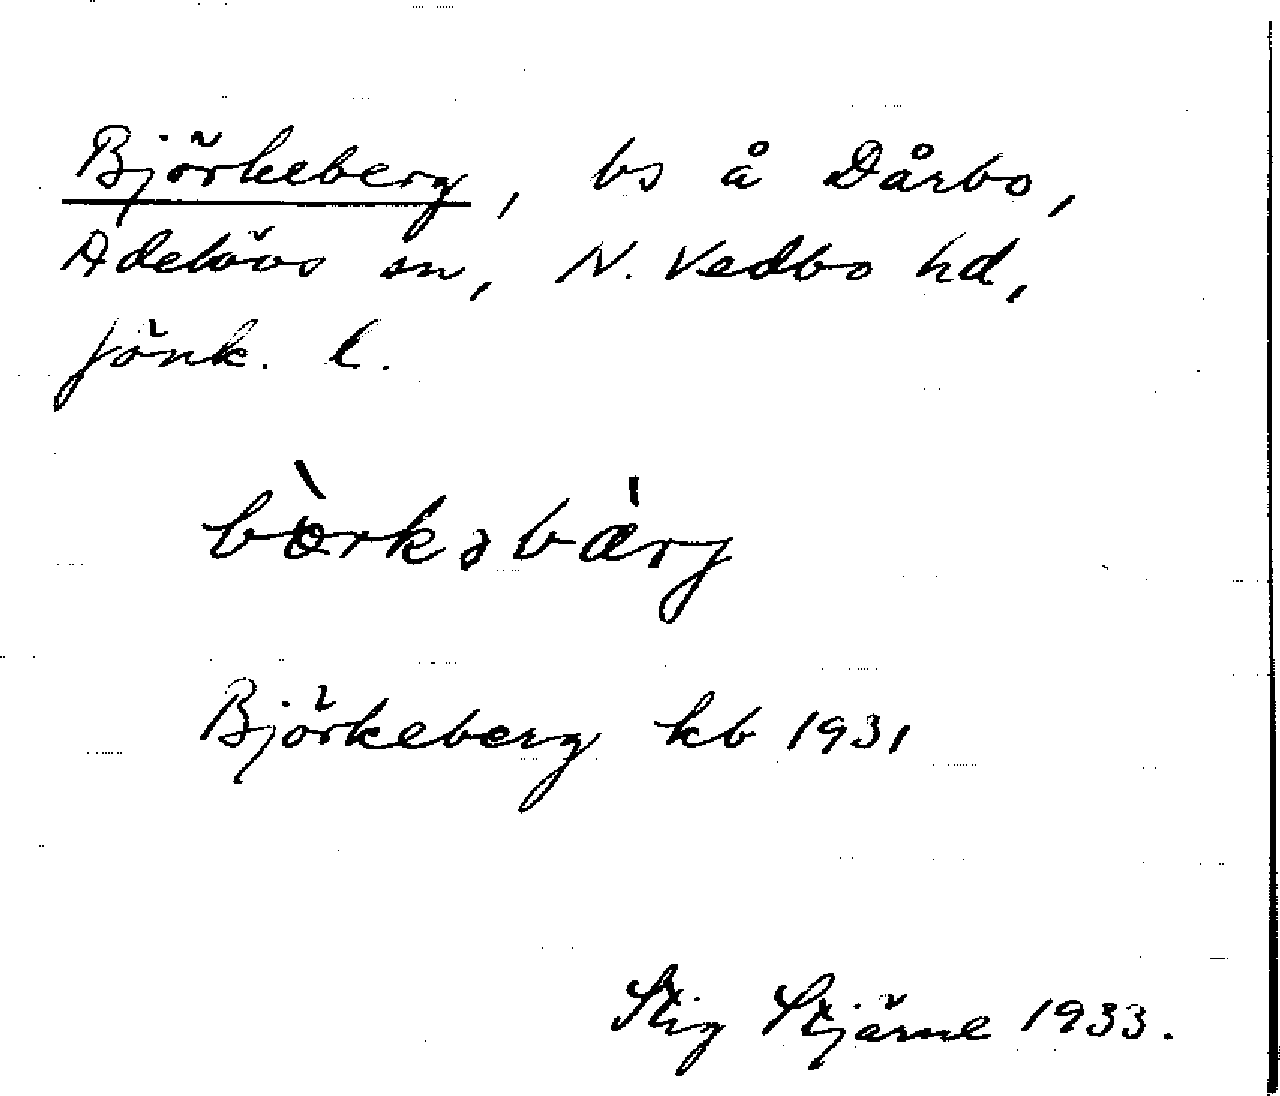 Björkeberg, bs å Dårbo,
Adelövs sn, N. Vedbo hd,
Jönk. l.
bö̀rkəbærj
Björkeberg kb 1931
Stig Stjärne 1933.